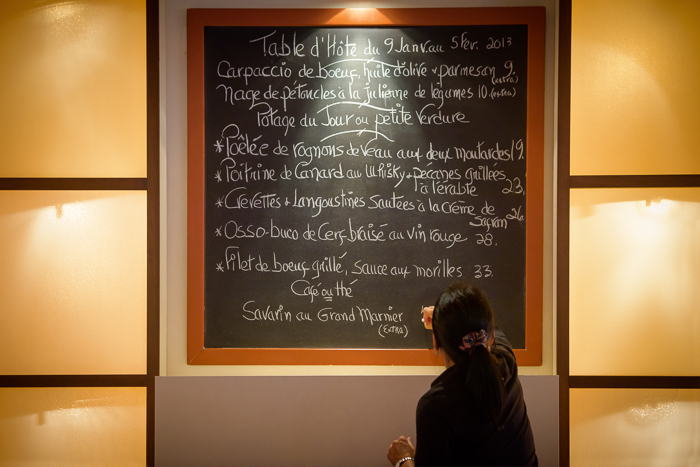 Table d'Hôte du 9 Janv. au 5 fév. 2013
Carpaccio de boeuf, huile d'olive + parmesan 9. (extra)
Nage de pétoncles à la julienne de légumes 10. (extra)
Potage du Jour ou petite verdure
* Poêlée de rognons de veau aux deux moutardes 19.
* Poitrine de Canard au Whisky + pécanes grillées
à l'érable 23.
* Crevettes + Langoustines sautées à la crème de
Safran 26.
* Osso-buco de Cerf braisé au vin rouge 28.
* Filet de boeuf grillé, sauce aux morilles 33.
Café ou thé
Savarin au Grand Marnier
(Extra)